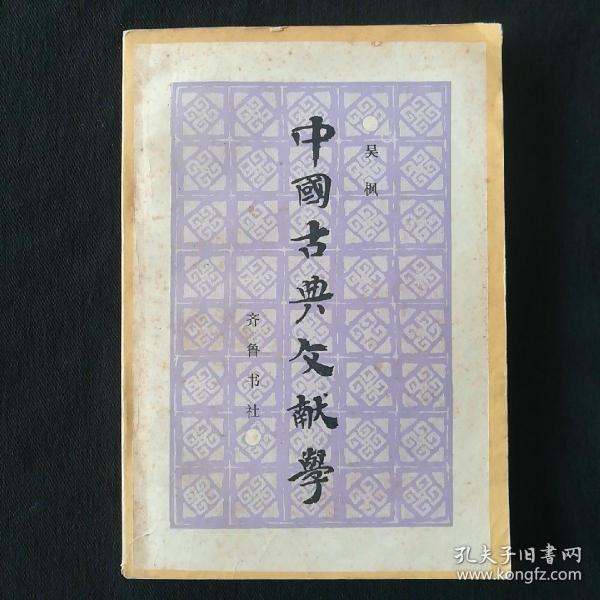 吴枫
中國古典文献學
齐鲁书社
孔夫子旧書网
www.kongfz.com